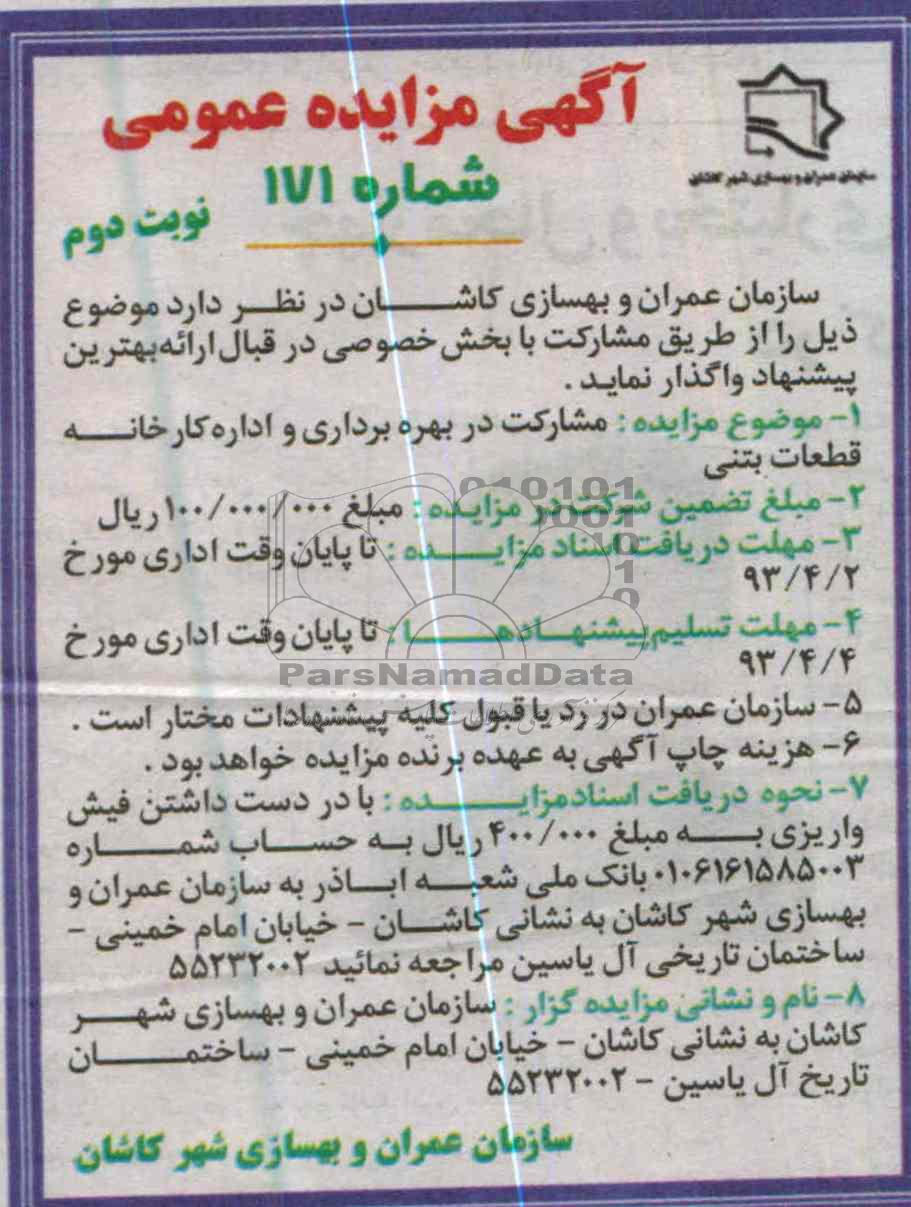 سازمان عمران و بهسازی شهر کاشان
آگهی مزایده عمومی
شماره ۱۷۱
نوبت دوم
سازمان عمران و بهسازی کاشان در نظر دارد موضوع
ذیل را از طریق مشارکت با بخش خصوصی در قبال ارائه بهترین
پیشنهاد واگذار نماید .
۱- موضوع مزایده : مشارکت در بهره برداری و اداره کارخانه
قطعات بتنی
۲- مبلغ تضمین شرکت در مزایده : مبلغ ۱۰۰/۰۰۰/۰۰۰ ریال
۳- مهلت دریافت اسناد مزایده : تا پایان وقت اداری مورخ
۹۳/۴/۲
۴- مهلت تسلیم پیشنهادها : تا پایان وقت اداری مورخ
۹۳/۴/۴
ParsNamadData
۵- سازمان عمران در رد یا قبول کلیه پیشنهادات مختار است .
۶- هزینه چاپ آگهی به عهده برنده مزایده خواهد بود .
۷- نحوه دریافت اسناد مزایده : با در دست داشتن فیش
واریزی به مبلغ ۴۰۰/۰۰۰ ریال به حساب شماره
۰۱۰۶۱۶۱۵۸۵۰۰۳ بانک ملی شعبه اباذر به سازمان عمران و
بهسازی شهر کاشان به نشانی کاشان - خیابان امام خمینی -
ساختمان تاریخی آل یاسین مراجعه نمائید ۵۵۲۳۲۰۰۲
۸- نام و نشانی مزایده گزار : سازمان عمران و بهسازی شهر
کاشان به نشانی کاشان - خیابان امام خمینی - ساختمان
تاریخ آل یاسین - ۵۵۲۳۲۰۰۲
سازمان عمران و بهسازی شهر کاشان